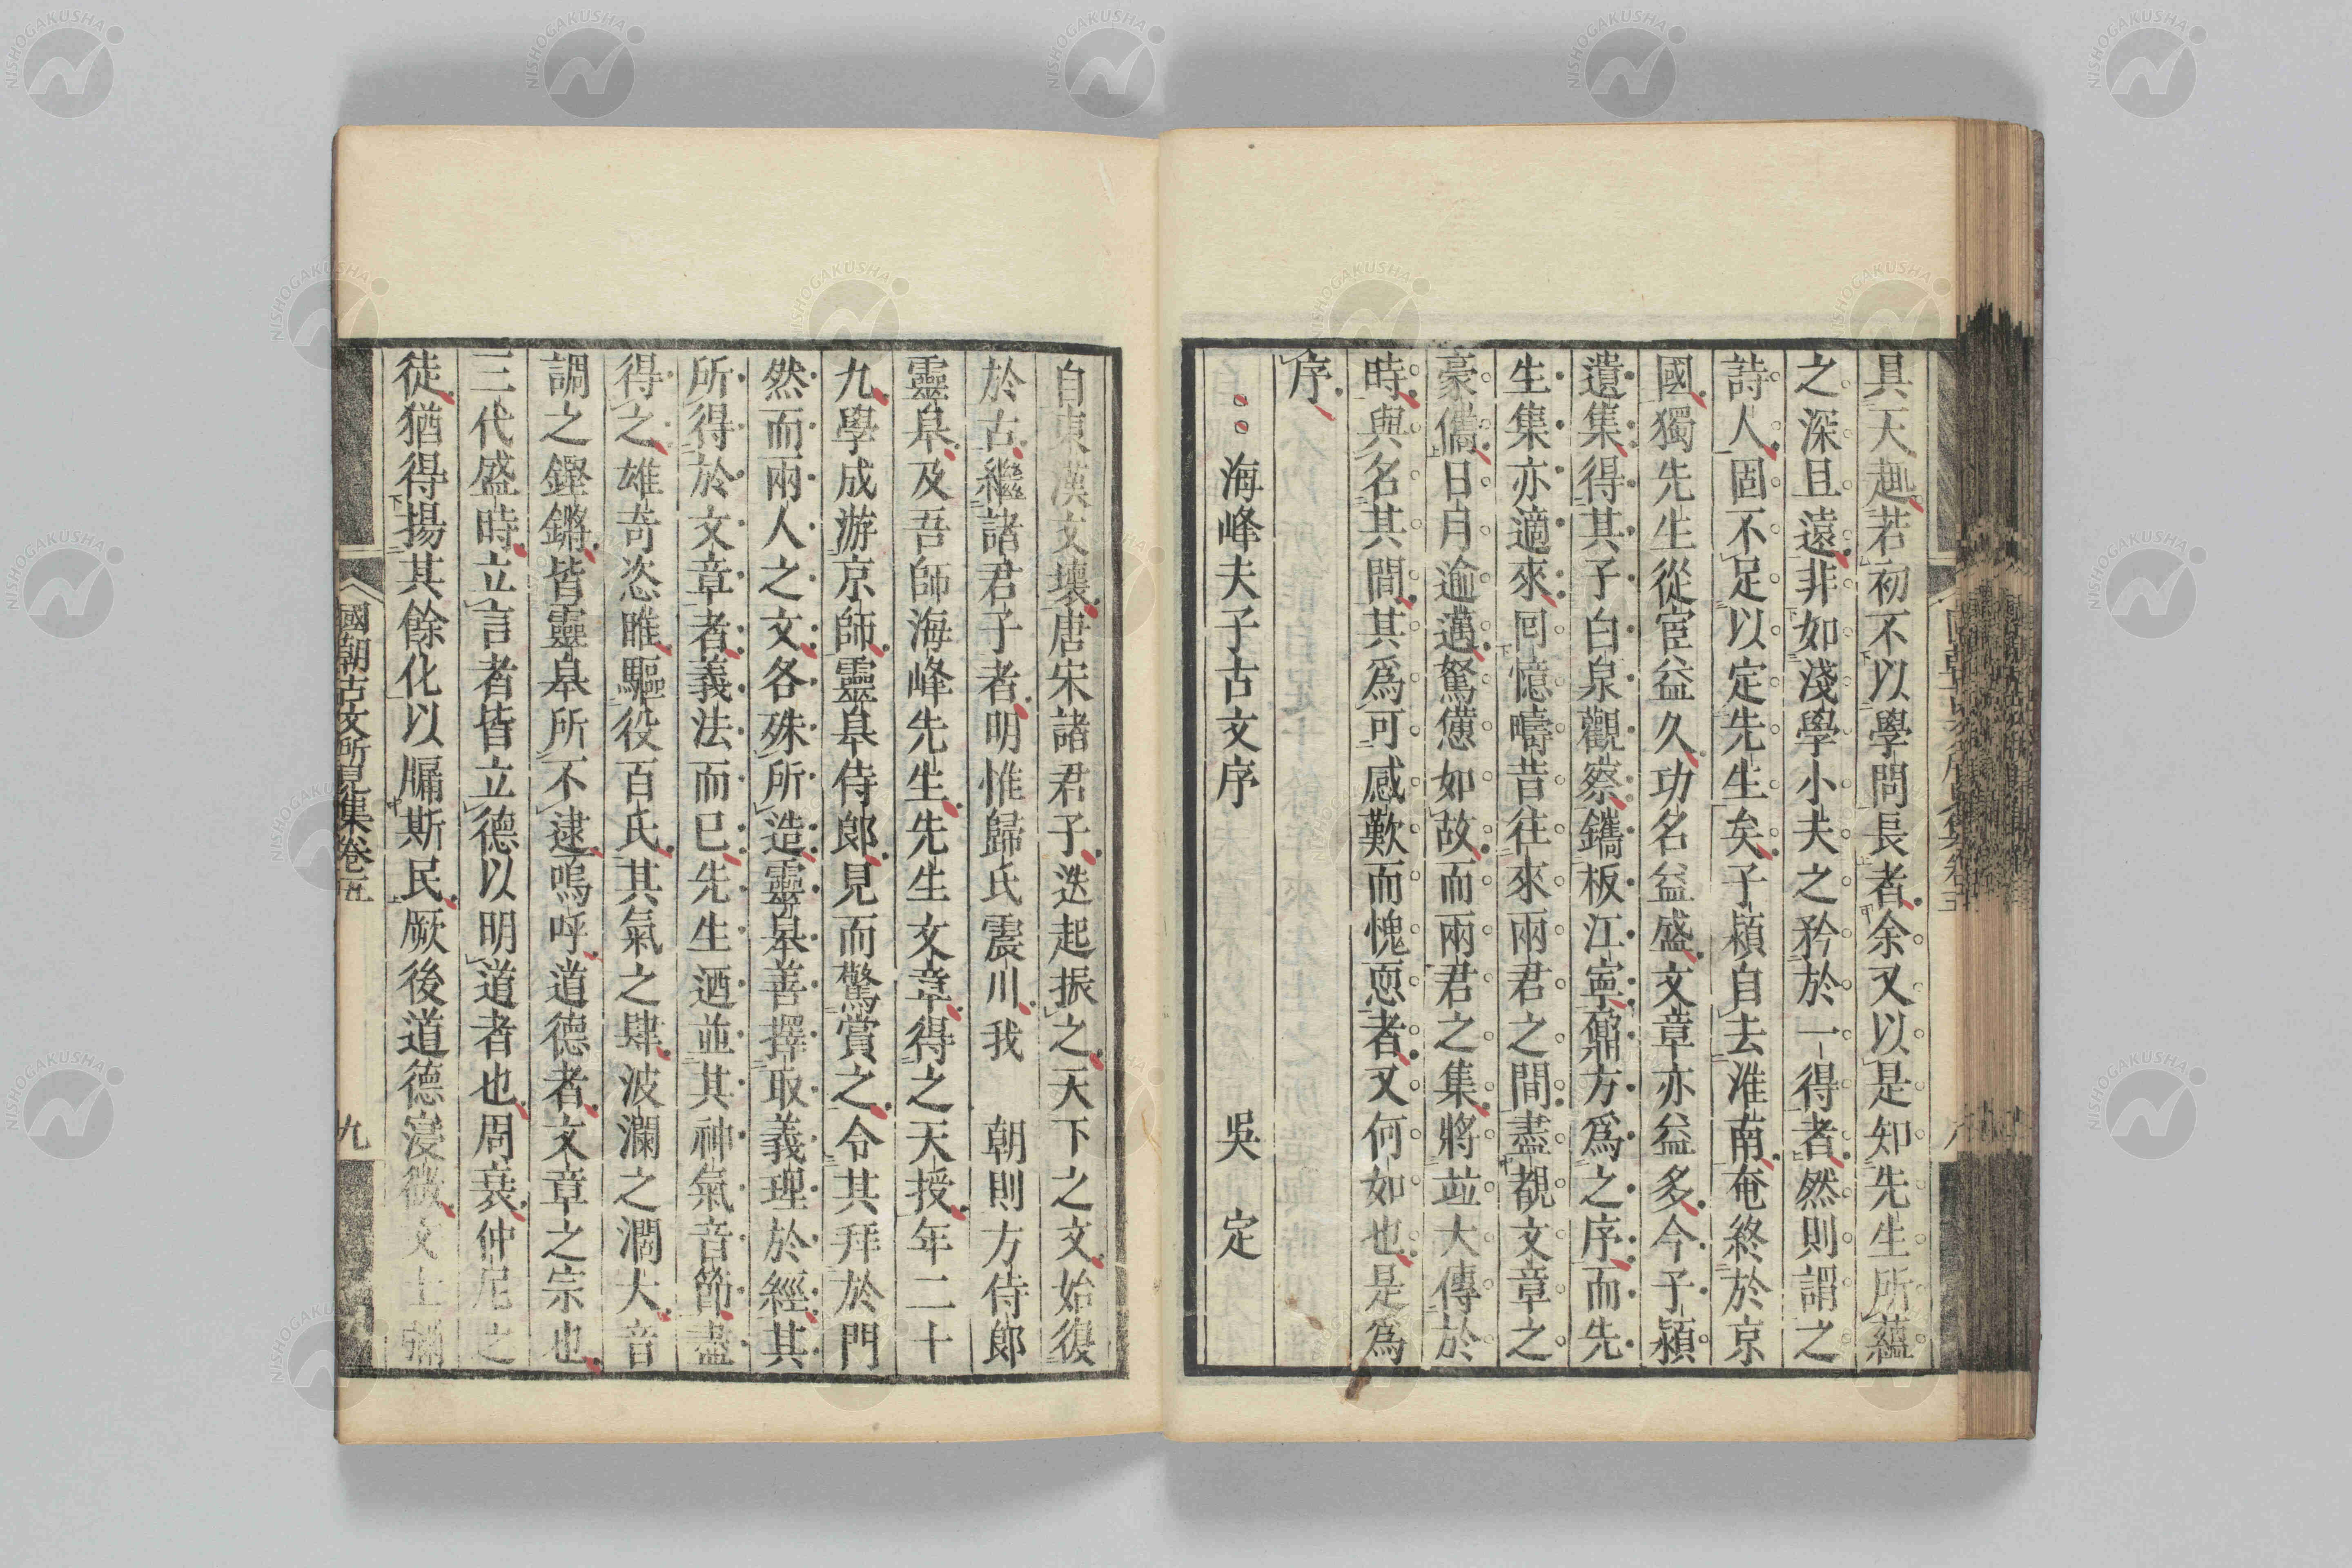 具天趣若初不以學問長者余又以是知先生所蘊
之深且遠非如淺學小夫之矜於一得者然則謂之
詩人固不足以定先生矣子穎自去淮南奄終於京
國獨先生從宦益久功名益盛文章亦益多今子穎
遺集得其子白泉觀察鐫板江寧鼐方為之序而先
生集亦適來回憶疇昔往來兩君之間盡覩文章之
豪儁日月逾邁駑憊如故而兩君之集將竝大傳於
時與名其間其為可感歎而愧恧者又何如也是為
序
海峰夫子古文序 吳定
自東漢文壞唐宋諸君子迭起振之天下之文始復
於古繼諸君子者明惟歸氏震川我 朝則方侍郎
靈皋及吾師海峰先生先生文章得之天授年二十
九學成游京師靈皋侍郎見而驚賞之令其拜於門
然而兩人之文各殊所造靈皋善擇取義理於經其
所得於文章者義法而已先生迺並其神氣音節盡
得之雄奇恣睢驅役百氏其氣之肆波瀾之濶大音
調之鏗鏘皆靈皋所不逮嗚呼道德者文章之宗也
三代盛時立言者皆立德以明道者也周衰仲尼之
徒猶得揚其餘化以牖斯民厥後道德寖微文士
國朝古文所見集卷五
九
NISHOGAKUSHA